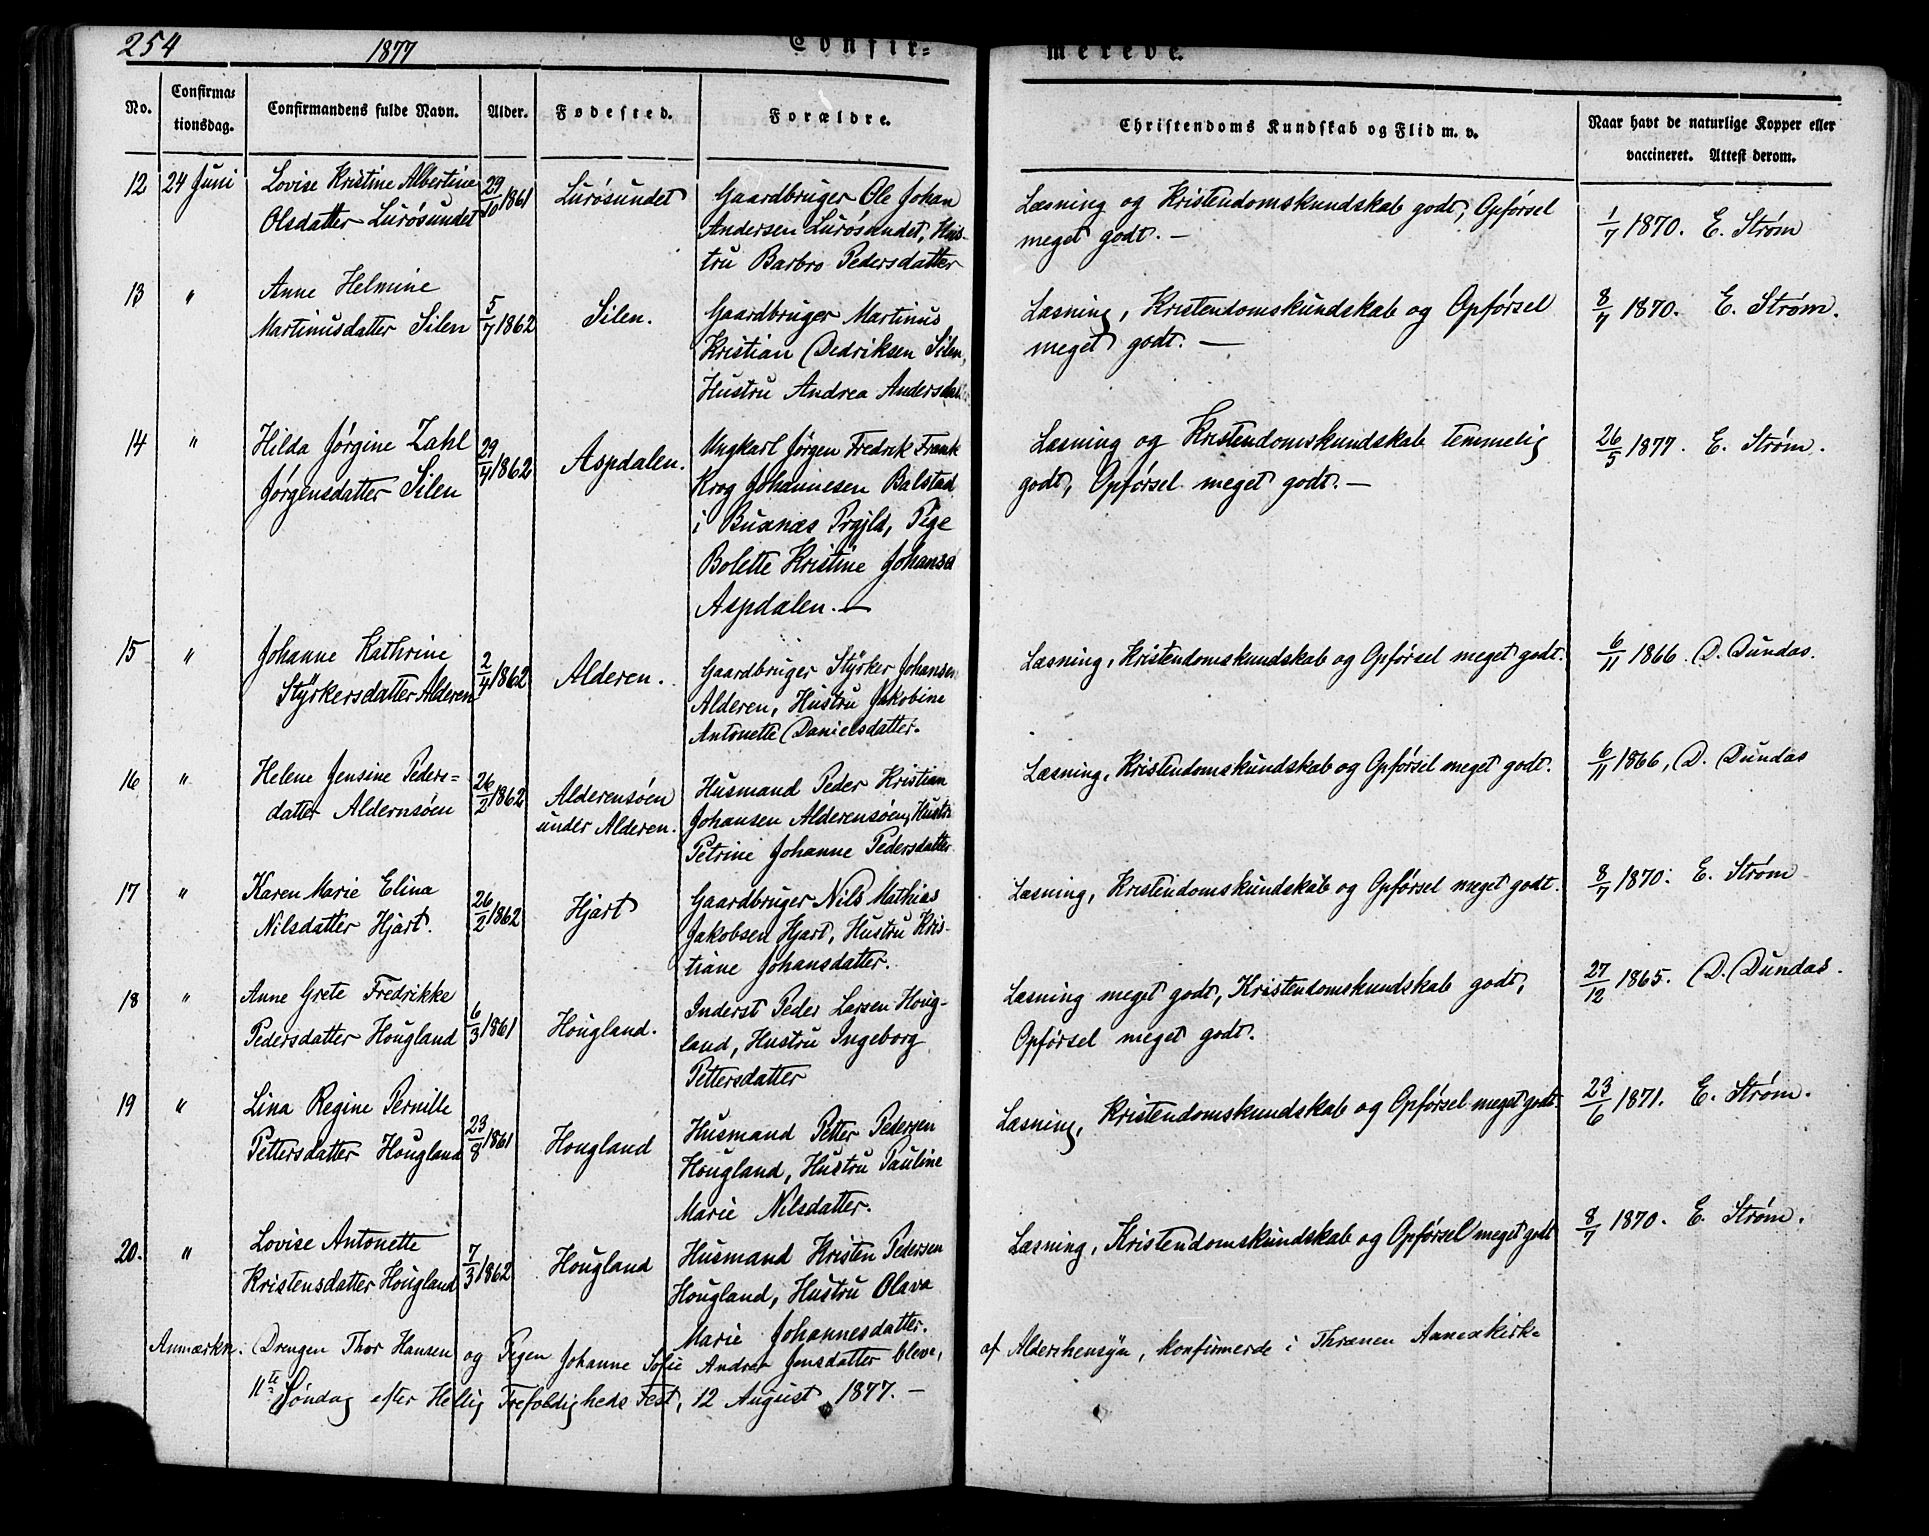 254
1877
Confir=
merede.
No.
Confirma=
tionsdag.
Confirmandens fulde Navn.
Alder.
Fødested.
Forældre.
Christendoms Kundskab og Flid m. v.
Naar havt de naturlige Kopper eller
vaccineret. Attest derom.
12
24 Juni
Lovise Kristine Albertine
Olsdatter Lurøsundet
29/10 1861
Lurøsundet
Gaardbruger Ole Johan
Andersen Lurøsundet, Hus-
tru Barbro Pedersdatter
Læsning og Kristendomskundskab godt, Opførsel
meget godt. —
1/7 1870. E. Strøm
13
"
Anne Helmine
Martinusdatter Silen
5/7 1862
Silen.
Gaardbruger Martinus
Kristian Dedriksen Silen,
Hustru Andrea Andersdat
Læsning, Kristendomskundskab og Opførsel
meget godt. —
8/7 1870. E. Strøm.
14
"
Hilda Jørgine Zahl
Jørgensdatter Silen
29/4 1862
Aspdalen.
Ungkarl Jørgen Fredrik Frank
Krog Johannesen Balstad
i Buxnæs Prgjld, Pige
Bolette Kristine Johansd
Aspdalen. —
Læsning og Kristendomskundskab temmelig
godt, Opførsel meget godt. —
26/5 1877. E. Strøm.
15
"
Johanne Kathrine
Styrkersdatter Alderen
2/4 1862
Alderen.
Gaardbruger Styrker Johansen
Alderen, Hustru Jakobine
Antonette Danielsdatter.
Læsning, Kristendomskundskab og Opførsel meget godt.
6/11 1866. D. Dundas.
16
"
Helene Jensine Peders=
datter Aldernsøen
26/2 1862
Alderensøen
under Alderen.
Husmand Peder Kristian
Johansen Alderensøen, Hustru
Petrine Johanne Pedersdatter
Læsning, Kristendomskundskab og Opførsel meget godt.
6/11 1866, D. Dundas
17
"
Karen Marie Elina
Nilsdatter Hjart.
26/2 1862
Hjart
Gaardbruger Nils Mathias
Jakobsen Hjart, Hustru Kris-
tiane Johansdatter.
Læsning, Kristendomskundskab og Opførsel meget godt.
8/7 1870. E. Strøm
18
"
Anne Grete Fredrikke
Pedersdatter Hougland
6/3 1861
Hougland.
Inderst Peder Larsen Houg-
land, Hustru Ingeborg
Pettersdatter
Læsning meget godt, Kristendomskundskab godt,
Opførsel meget godt.
27/12 1865. D. Dundas.
19
"
Lina Regine Pernille
Pettersdatter Hougland
23/8 1861
Hougland
Husmand Petter Pedersen
Hougland, Hustru Pauline
Marie Nilsdatter.
Læsning, Kristendomskundskab og Opførsel meget godt.
23/6 1871. E. Strøm.
20.
"
Lovise Antonette
Kristensdatter Hougland
7/3 1862
Hougland
Husmand Kristen Pedersen
Hougland, Hustru Olava
Marie Johannesdatter.
Læsning, Kristendomskundskab og Opførsel meget godt
8/7 1870. E. Strøm.
Anmærkn: Drengen Thor Hansen og Pigen Johanne Sofie Andrea Jensdatter bleve, af Alderchensyn, konfirmerde i Thrænen Annexkirke
11te Søndag efter Hellig Trefoldigheds Fest, 12 August 1877. —